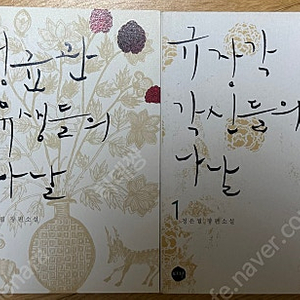 성균관
유생들의
나날
궐 장편소설
규장각
각신들의
나날
1
정은궐 장편소설